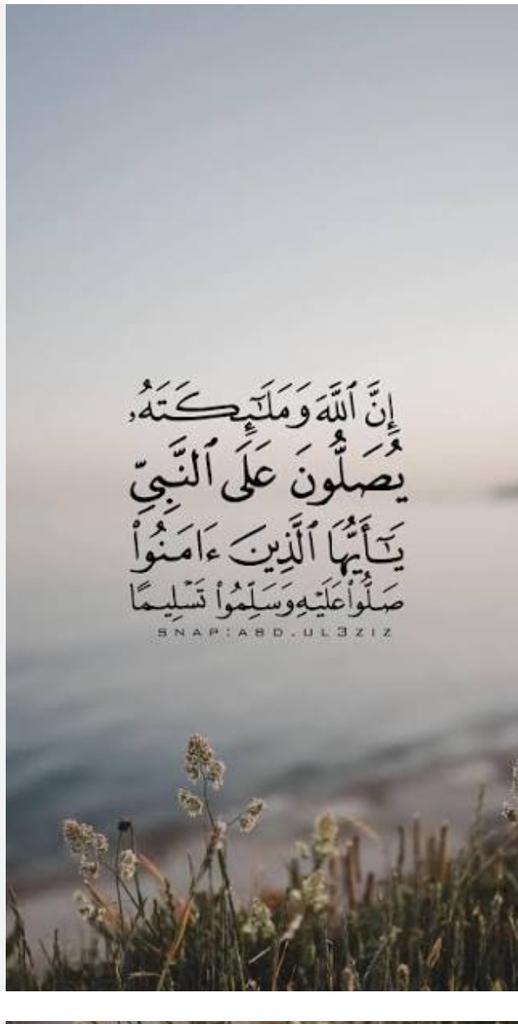 إِنَّ ٱللَّهَ وَمَلَـٰٓئِكَتَهُۥ
يُصَلُّونَ عَلَى ٱلنَّبِىِّ
يَـٰٓأَيُّهَا ٱلَّذِينَ ءَامَنُوا۟
صَلُّوا۟ عَلَيْهِ وَسَلِّمُوا۟ تَسْلِيمًا
SNAP:ABD.UL3ZIZ